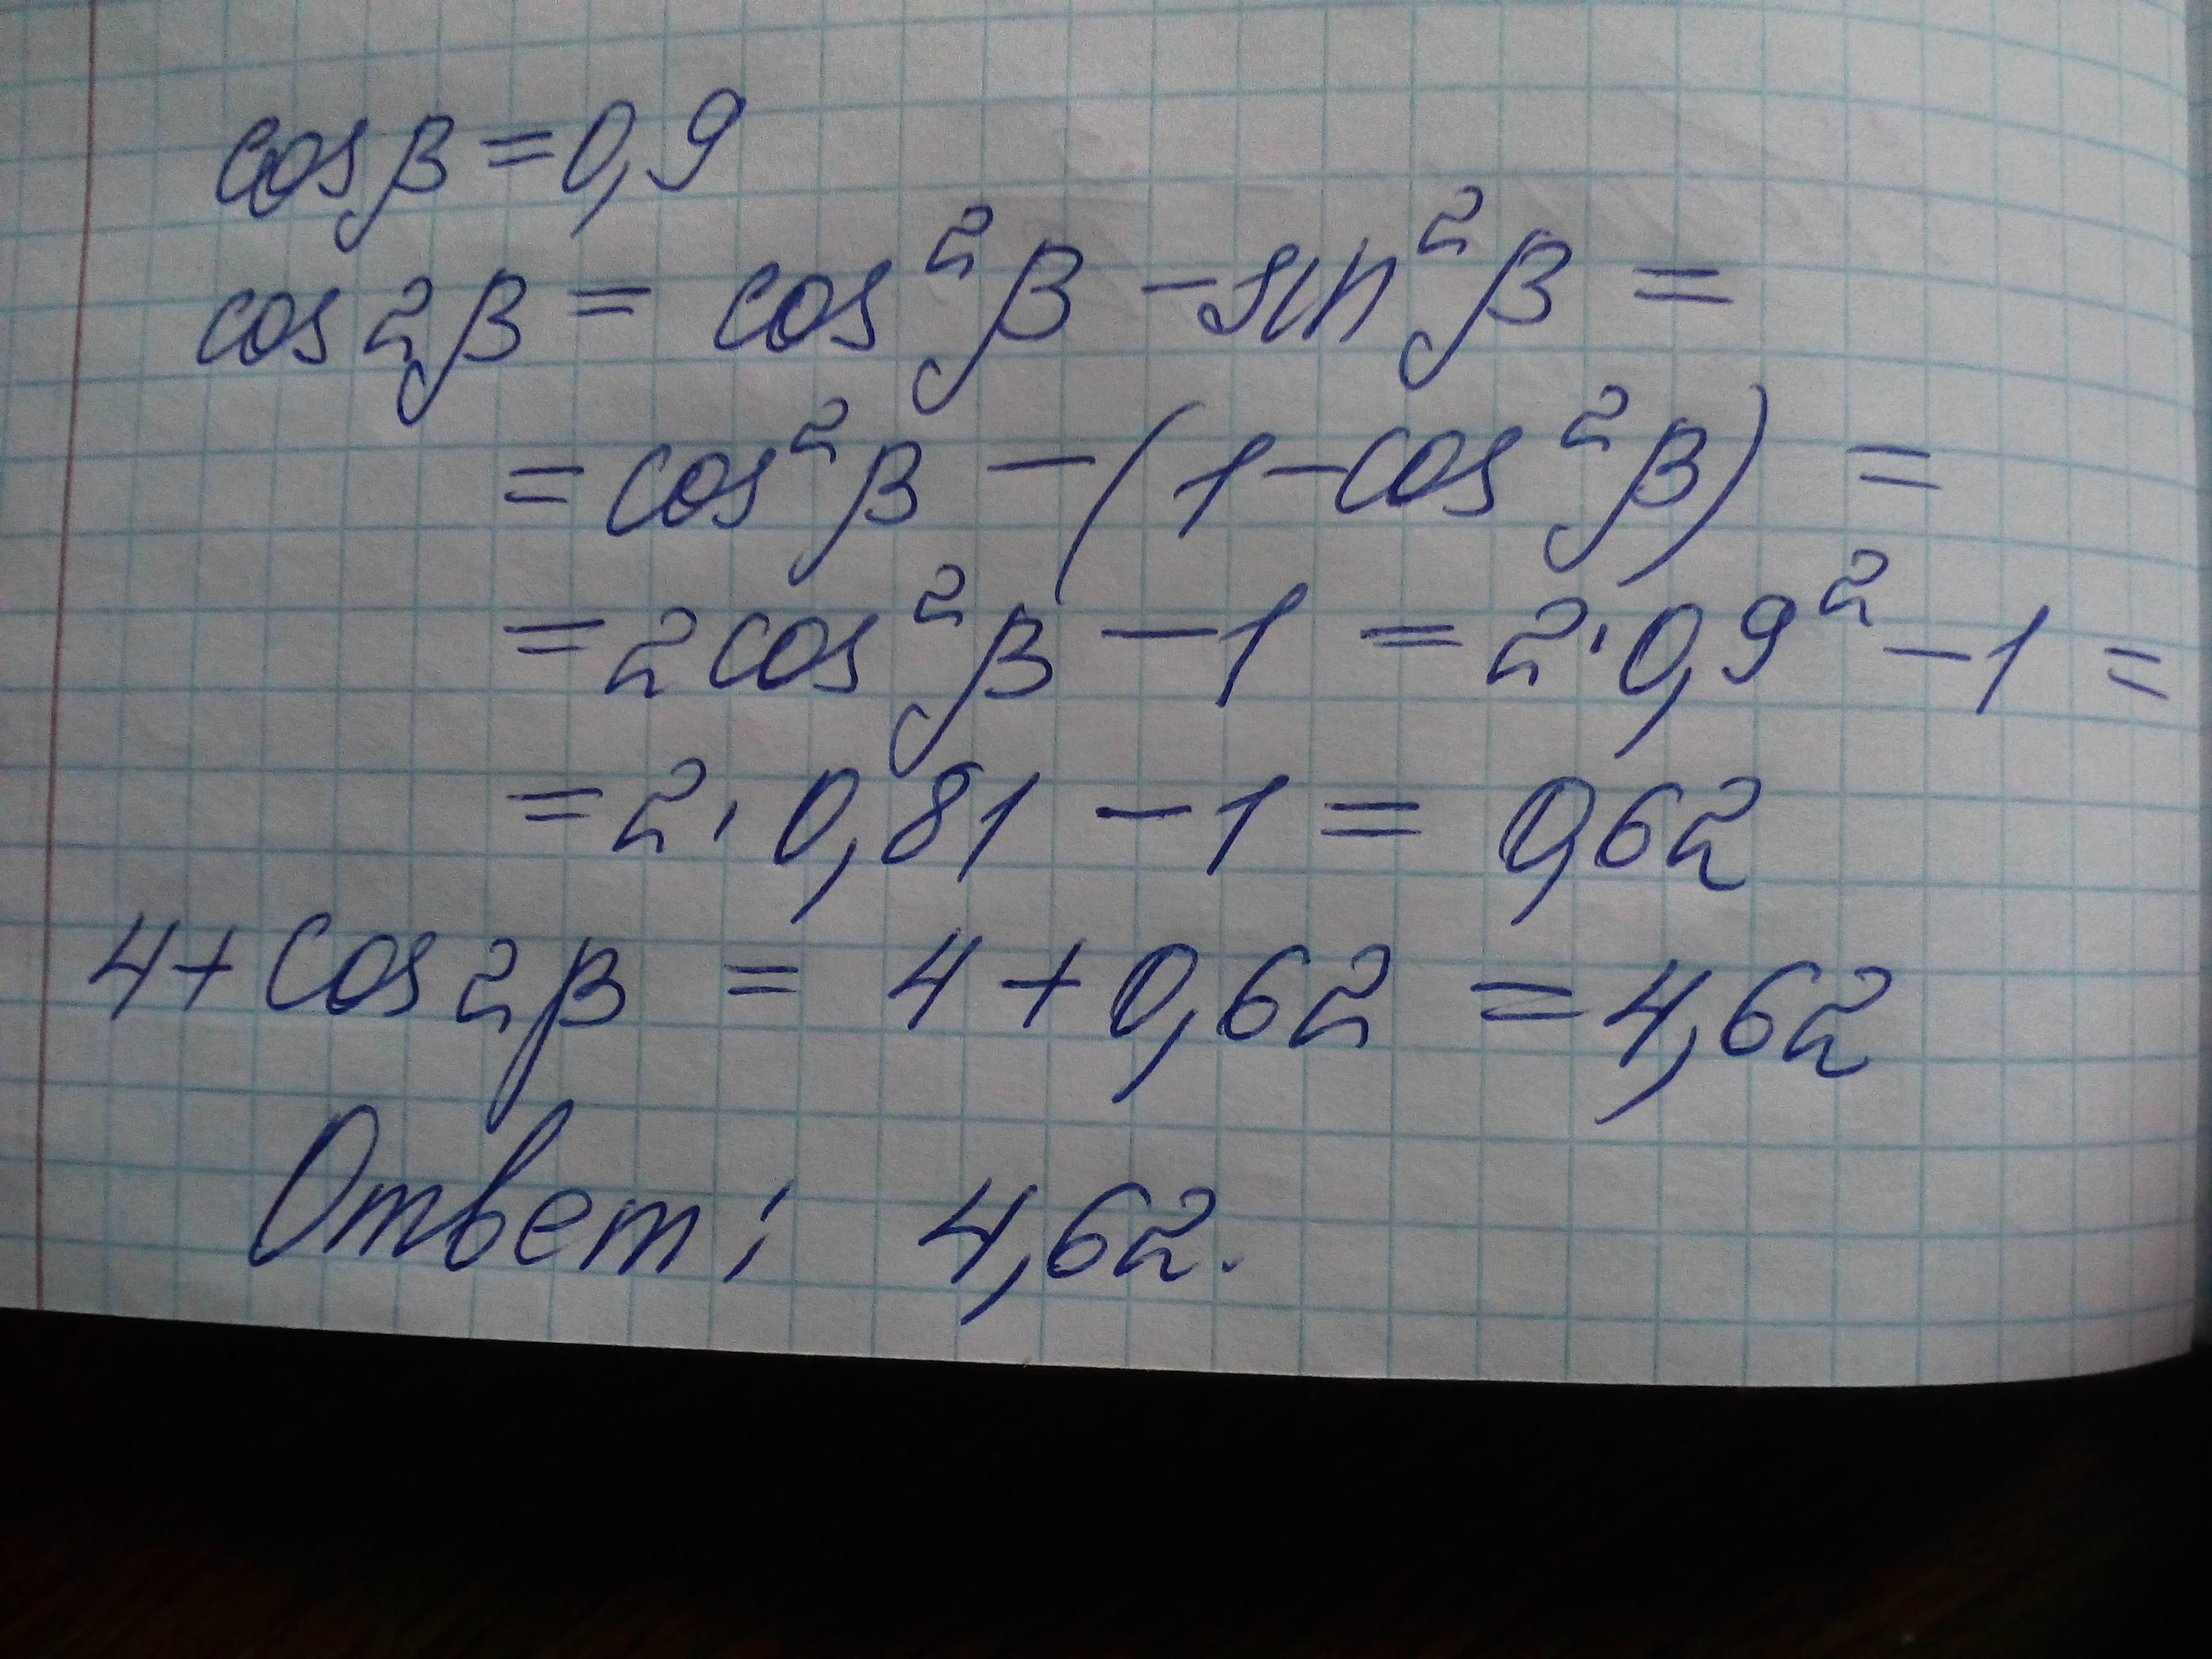 cos β = 0,9
cos 2β = cos²β − sin²β =
= cos²β − (1 − cos²β) =
= 2cos²β − 1 = 2·0,9² − 1 =
= 2·0,81 − 1 = 0,62
4 + cos 2β = 4 + 0,62 = 4,62
Ответ: 4,62.